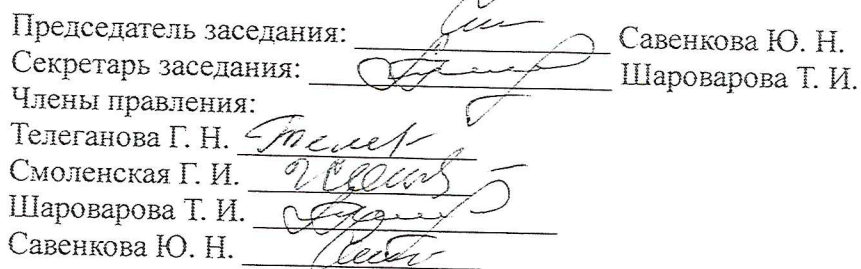 Председатель заседания: Савенкова Ю. Н.
Секретарь заседания: Шароварова Т. И.
Члены правления:
Телеганова Г. Н.
Смоленская Г. И.
Шароварова Т. И.
Савенкова Ю. Н.